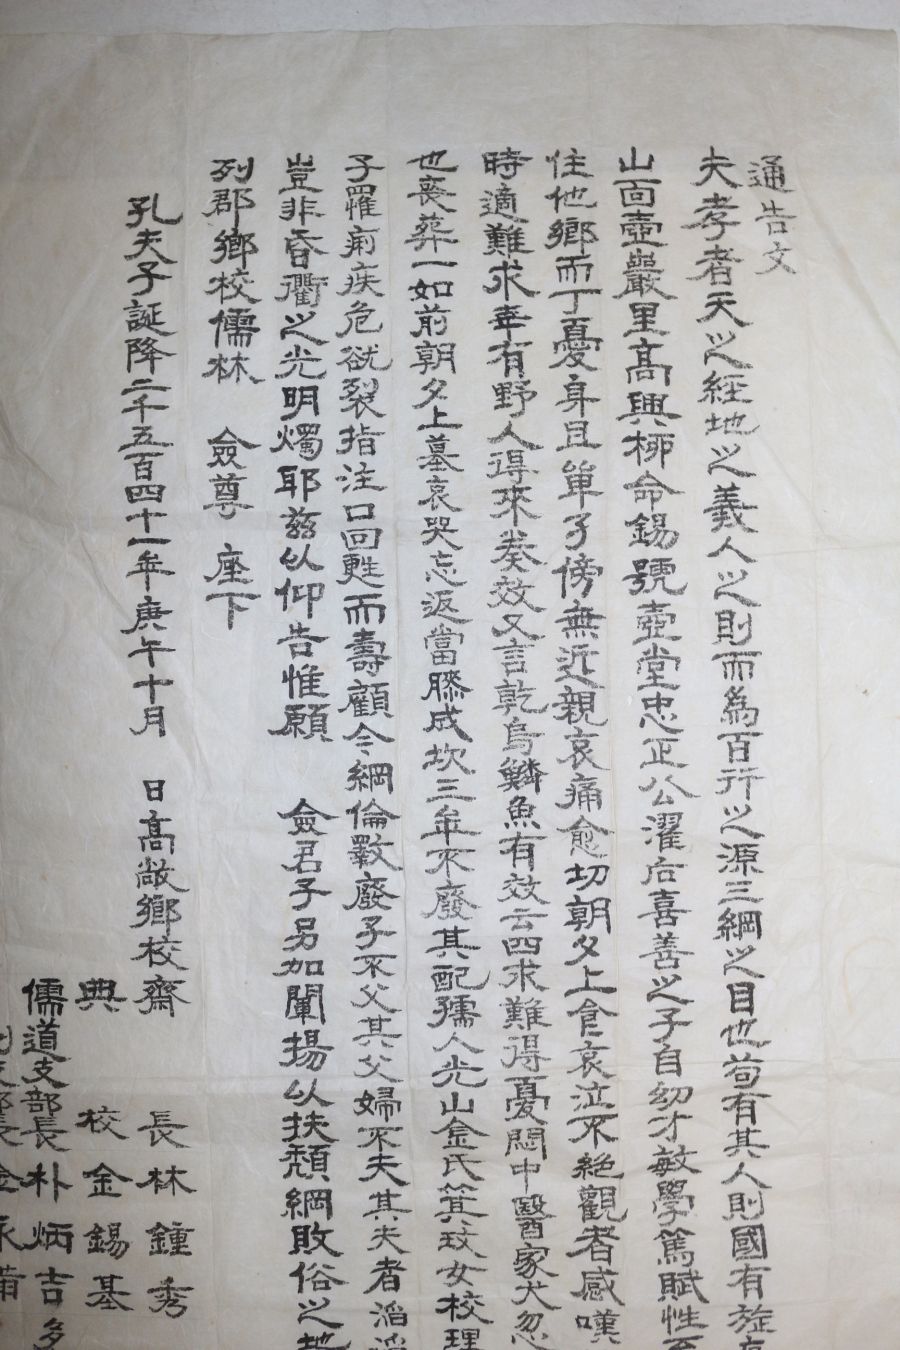 通告文
夫孝者天之経地之義人之則而為百行之源三綱之目也苟有其人則國有旌
山面壺巖里高興柳命錫號壺堂忠正公濯后喜善之子自幼才敏學篤賦性至
住他鄉而丁憂身且單孑傍無近親哀痛愈切朝夕上食哀泣不絕觀者感嘆
時適難求幸有野人得來奏效又言乾烏鱗魚有效云四求難得憂悶中醫家犬忽
也喪葬一如前朝夕上墓哀哭忘返當膝成坎三年不廢其配孺人光山金氏箕玟女校理
子罹痾疾危欲裂指注口回甦而壽顧今綱倫斁廢子不父其父婦不夫其夫者滔滔
豈非昏衢之光明燭耶玆以仰告惟願 僉君子另加闡揚以扶頹綱敗俗之地
列郡鄉校儒林 僉尊 座下
孔夫子誕降二千五百四十一年庚午十月 日高敞鄉校齋長林鍾秀
典校金錫基
儒道支部長朴炳吉
支部長金永